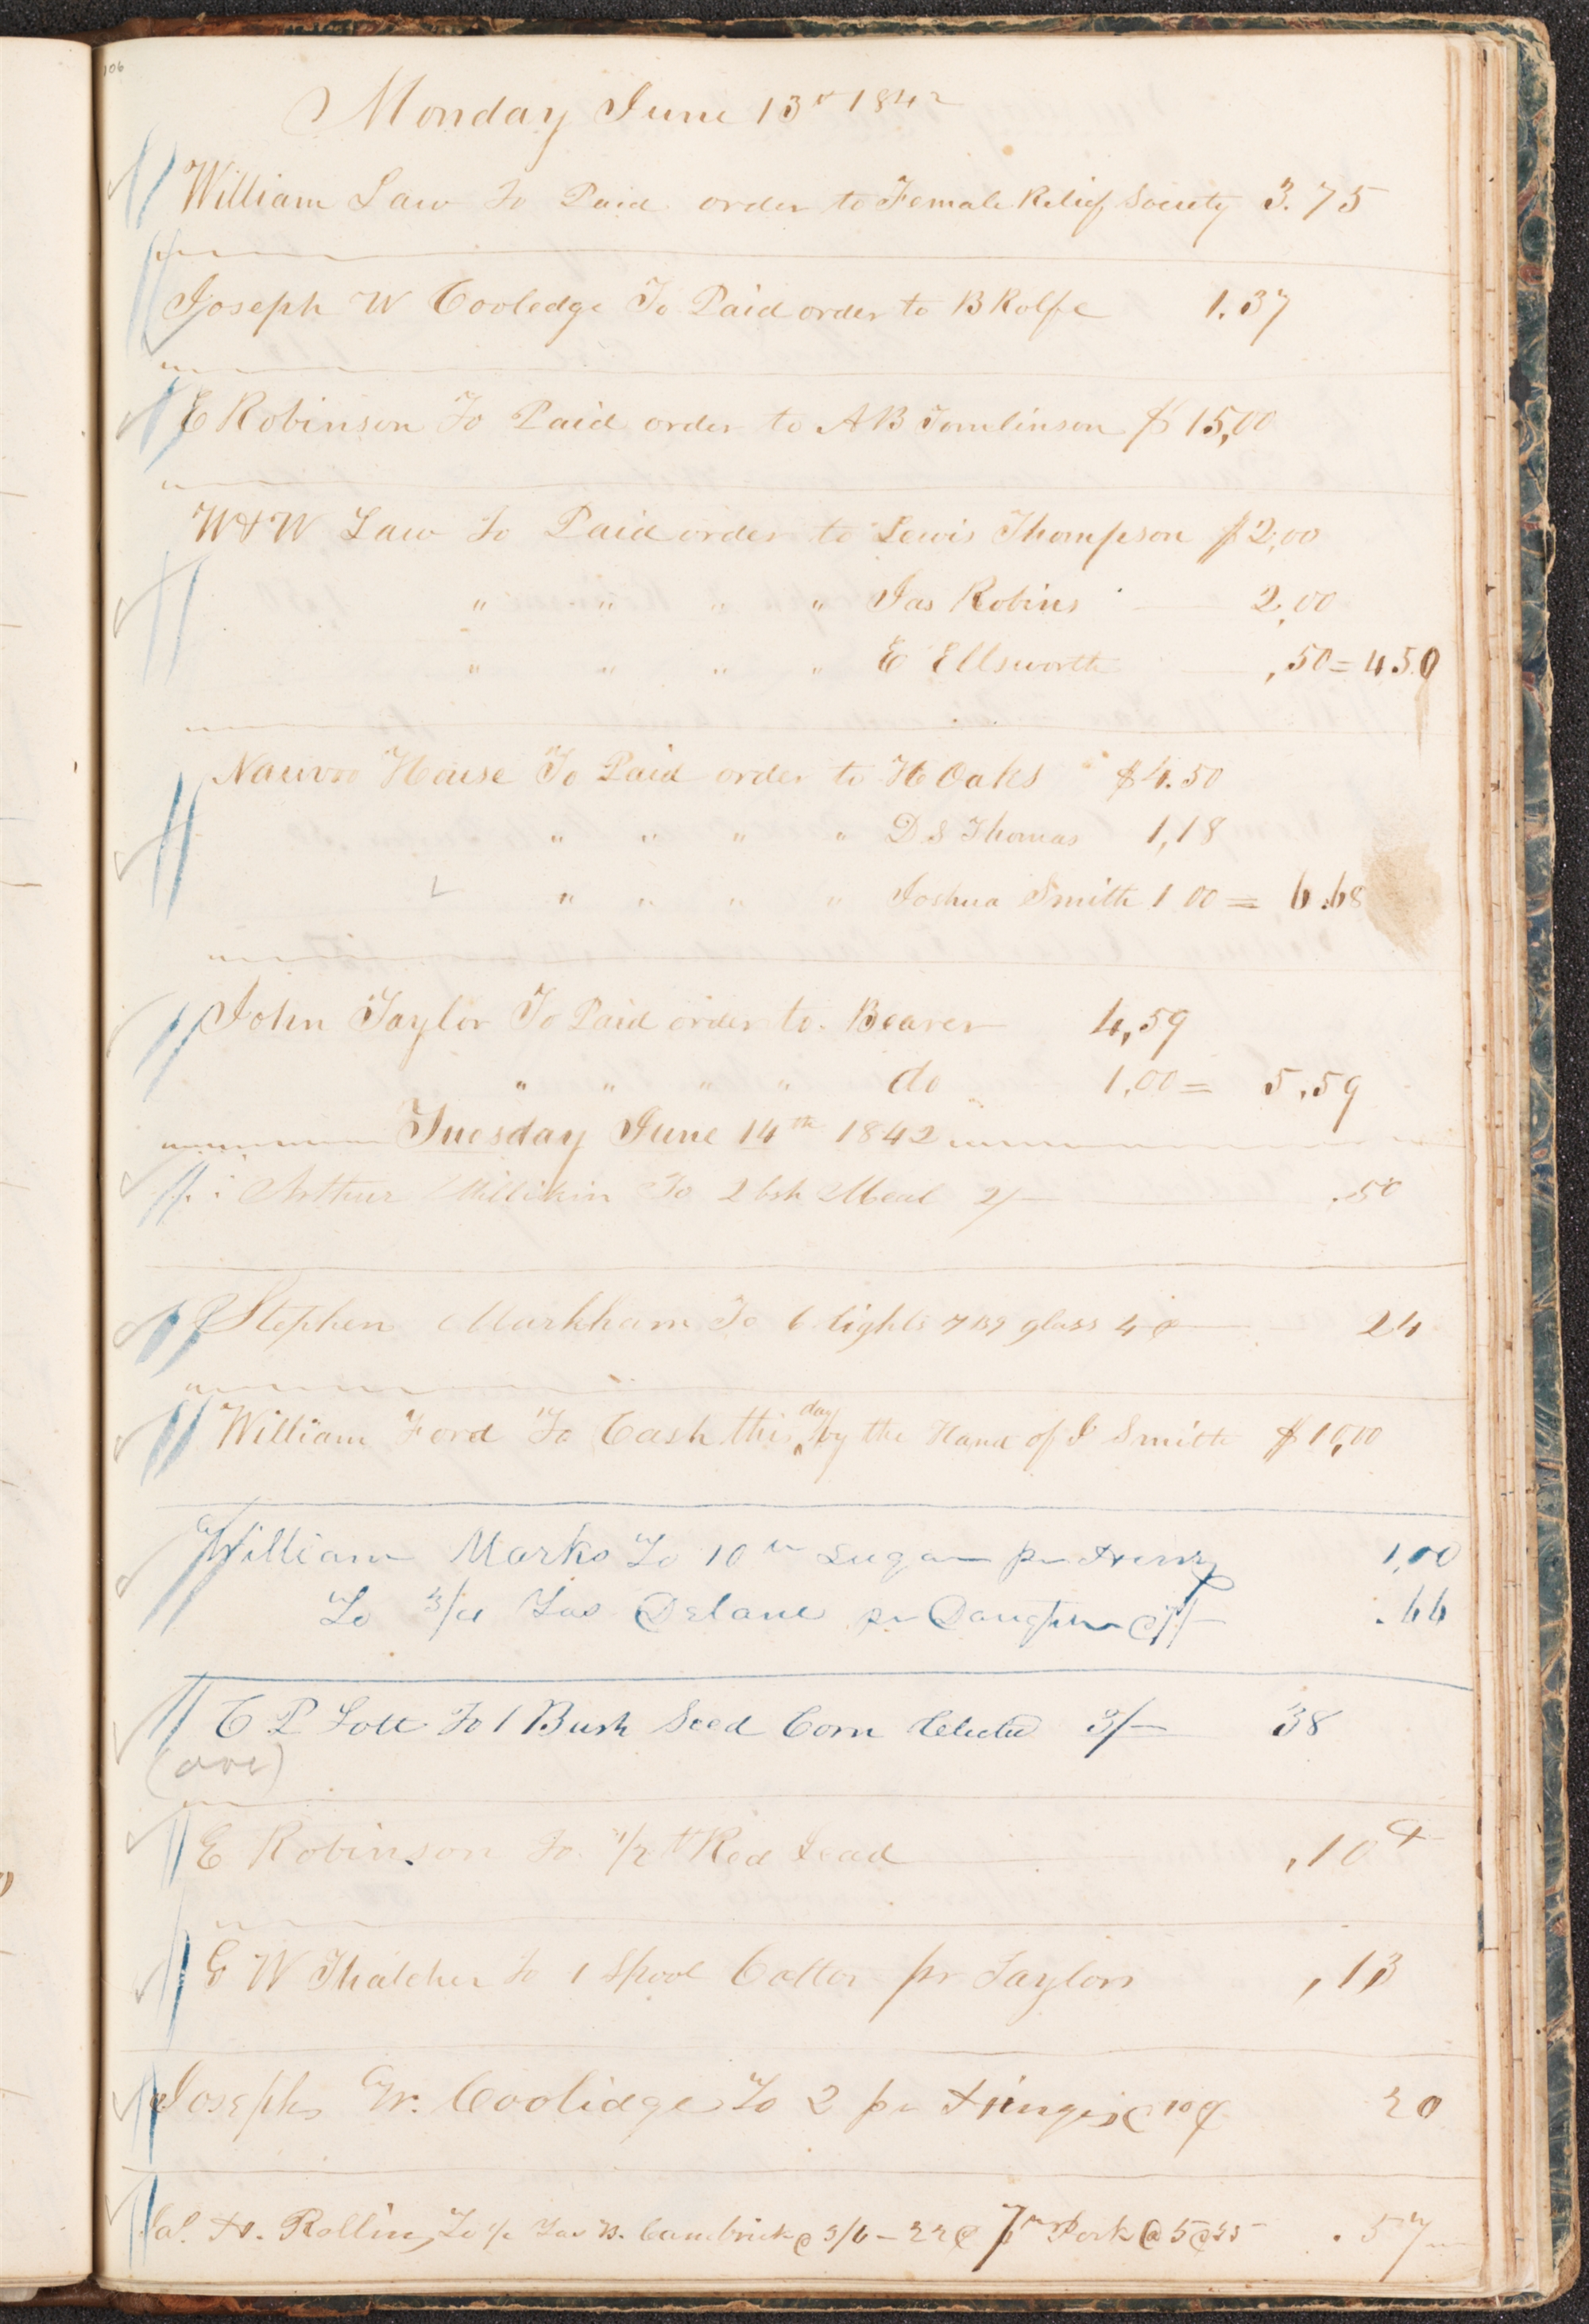 106
Monday June 13th 1842
William Law To Paid order to Female Relief Society 3.75
Joseph W Cooledge To Paid order to B Rolfe 1.37
E Robinson To Paid order to A B Tomlinson $15,00
W & W Law To Paid order to Lewis Thompson $2,00
" " " " Jas Robins 2,00
" " " " E Ellsworth ,50 = 4.50
Nauvoo House To Paid order to H Oaks $4.50
" " " " D S Thomas 1,18
" " " " Joshua Smith 1 00 = 6.68
John Taylor To Paid order to Bearer 4,59
" " " " do 1,00 = 5.59
Tuesday June 14th 1842
Arthur Millikin To 2 bsh Meal 2/— .50
Stephen Markham To 6 lights 7 x 9 glass 4 ¢ 24
William Ford To Cash this day by the Hand of J Smith $10,00
William Marks To 10 lb Sugar pr Henry 1,00
To 3/4 Yas Delane pr Daughter @ 7/— .66
C P Lott To 1 Bush Seed Corn 3/— 38
(ove)
E Robinson To 1/2 lb Red Lead ,10 ¢
G W Thatcher To 1 Spool Cotton pr Taylor ,13
Joseph W. Coolidge To 2 pr Hinges @ 10¢ 20
Ja.s H. Rollins To 1/2 Yas B. Cambrick @ 3/6 – 22¢ 7 lb Pork @ 5¢ 35 .57